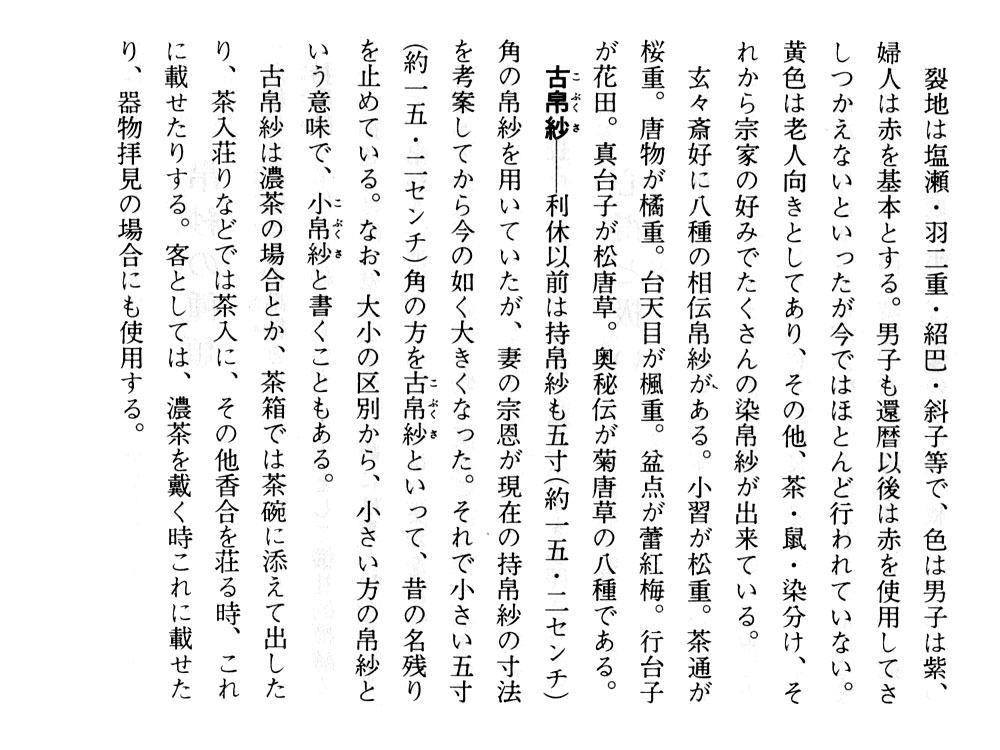 裂地は塩瀬・羽二重・紹巴・斜子等で、色は男子は紫、
婦人は赤を基本とする。男子も還暦以後は赤を使用してさ
しつかえないといったが今ではほとんど行われていない。
黄色は老人向きとしてあり、その他、茶・鼠・染分け、そ
れから宗家の好みでたくさんの染帛紗が出来ている。
玄々斎好に八種の相伝帛紗がある。小習が松重。茶通が
桜重。唐物が橘重。台天目が楓重。盆点が蕾紅梅。行台子
が花田。真台子が松唐草。奥秘伝が菊唐草の八種である。
古帛紗――利休以前は持帛紗も五寸(約一五・二センチ)
角の帛紗を用いていたが、妻の宗恩が現在の持帛紗の寸法
を考案してから今の如く大きくなった。それで小さい五寸
(約一五・二センチ)角の方を古帛紗といって、昔の名残り
を止めている。なお、大小の区別から、小さい方の帛紗と
いう意味で、小帛紗と書くこともある。
古帛紗は濃茶の場合とか、茶箱では茶碗に添えて出した
り、茶入荘りなどでは茶入に、その他香合を荘る時、これ
に載せたりする。客としては、濃茶を戴く時これに載せた
り、器物拝見の場合にも使用する。